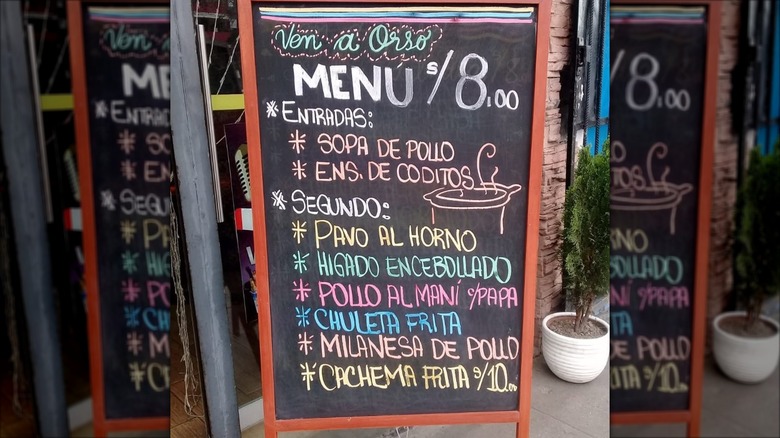 Ven a Orso
MENÚ S/8.00
* ENTRADAS:
* SOPA DE POLLO
* ENS. DE CODITOS
* SEGUNDO:
* PAVO AL HORNO
* HIGADO ENCEBOLLADO
* POLLO AL MANÍ C/PAPA
* CHULETA FRITA
* MILANESA DE POLLO
* CACHEMA FRITA S/10.00